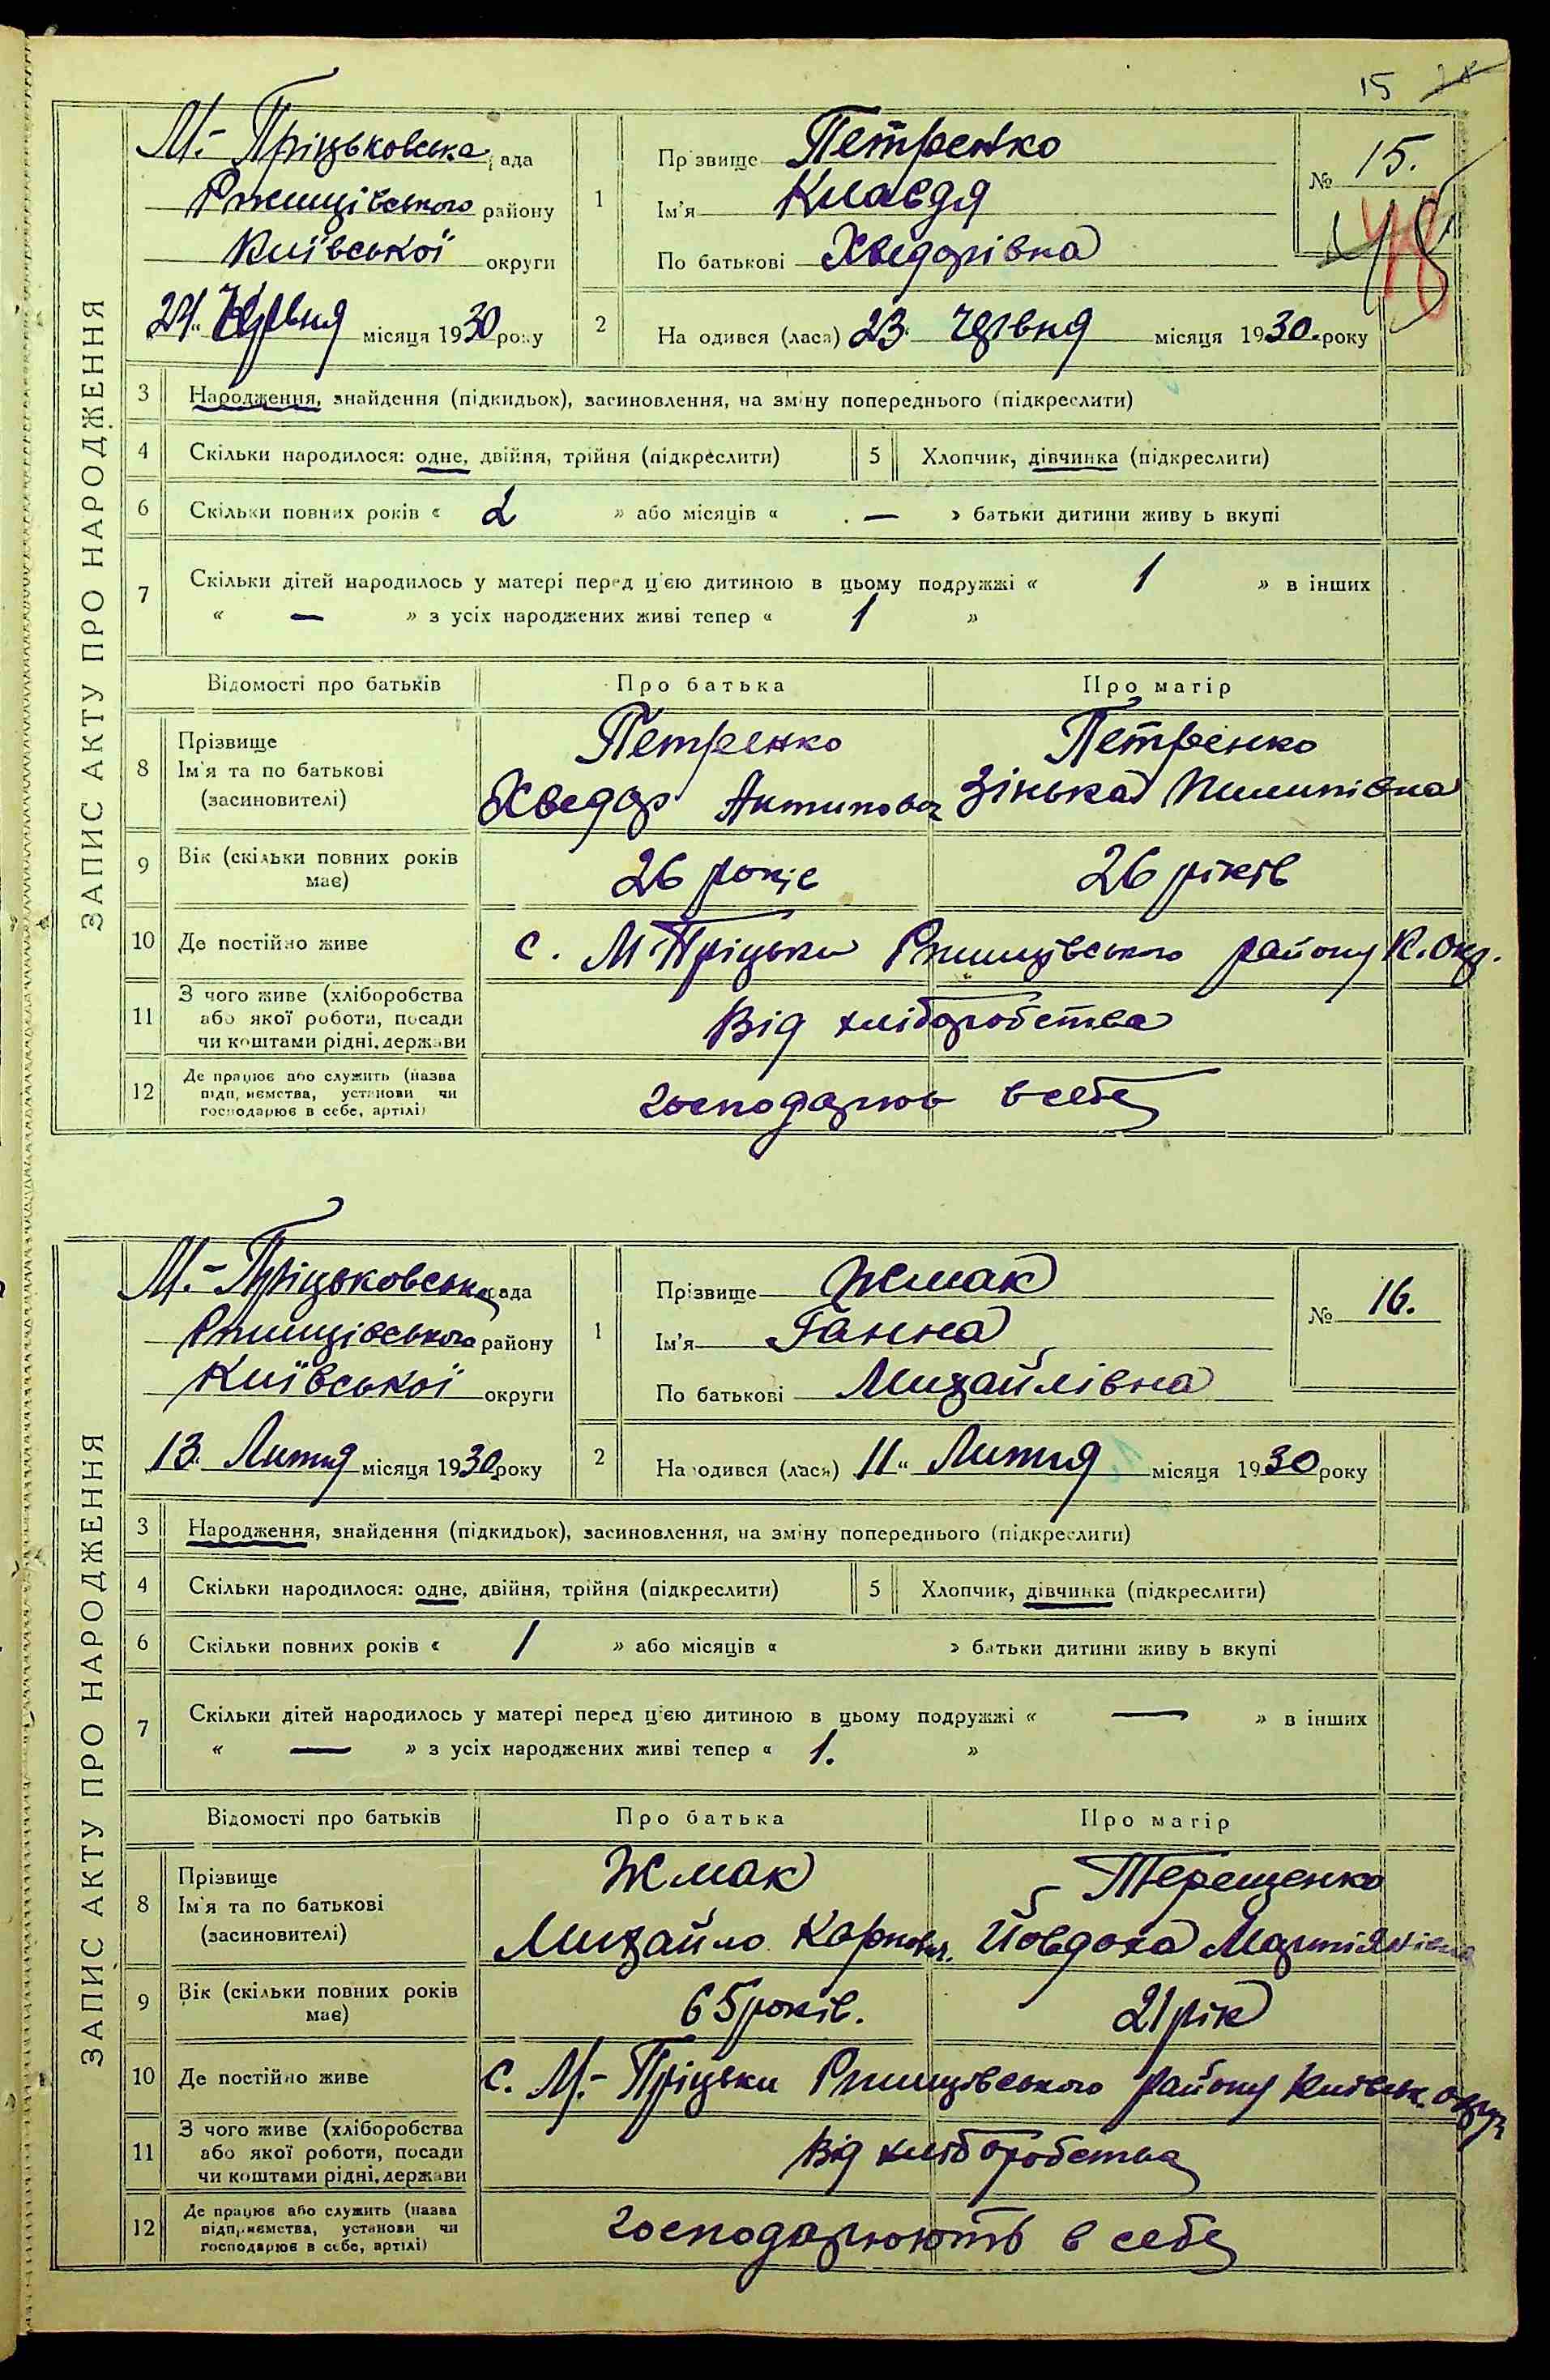 15
ЗАПИС АКТУ ПРО НАРОДЖЕННЯ
М.-Пріцьковська рада
Ржищівського району
Київської округи
24. Червня місяця 1930 року
1
Прізвище Петренко
Ім'я Клавдя
По батькові Хведорівна
№ 15.
48
2
Народився (лася) 23. червня місяця 1930. року
3 Народження, знайдення (підкидьок), засиновлення, на зміну попереднього (підкреслити)
4 Скільки народилося: одне, двійня, трійня (підкреслити) 5 Хлопчик, дівчинка (підкреслити)
6 Скільки повних років « 2 » або місяців « — » батьки дитини живуть вкупі
7 Скільки дітей народилось у матері перед ц'єю дитиною в цьому подружжі « 1 » в інших
« — » з усіх народжених живі тепер « 1 »
Відомості про батьків Про батька Про матір
8 Прізвище
Ім'я та по батькові
(засиновителі)
Петренко
Хведор Антипович
Петренко
Зінька Пилипівна
9 Вік (скільки повних років
має)
26 років 26 років
10 Де постійно живе с. М-Пріцьки Ржищівського району К. Окр.
11 З чого живе (хліборобства
або якої роботи, посади
чи коштами рідні, держави
Від хліборобства
12 Де працює або служить (назва
підприємства, установи чи
господарює в себе, артілі)
господарює в себе
ЗАПИС АКТУ ПРО НАРОДЖЕННЯ
М.-Пріцьковська рада
Ржищівського району
Київської округи
13. Липня місяця 1930 року
1
Прізвище Жмак
Ім'я Ганна
По батькові Михайлівна
№ 16.
2
Народився (лася) 11" Липня місяця 1930 року
3 Народження, знайдення (підкидьок), засиновлення, на зміну попереднього (підкреслити)
4 Скільки народилося: одне, двійня, трійня (підкреслити) 5 Хлопчик, дівчинка (підкреслити)
6 Скільки повних років « 1 » або місяців « » батьки дитини живуть вкупі
7 Скільки дітей народилось у матері перед ц'єю дитиною в цьому подружжі « — » в інших
« — » з усіх народжених живі тепер « 1. »
Відомості про батьків Про батька Про матір
8 Прізвище
Ім'я та по батькові
(засиновителі)
Жмак
Михайло Карпович.
Терещенко
Йовдоха Мартіянівна
9 Вік (скільки повних років
має)
65 років. 21 рік
10 Де постійно живе с. М.-Пріцьки Ржищівського району Київськ. округи
11 З чого живе (хліборобства
або якої роботи, посади
чи коштами рідні, держави
Від хліборобства
12 Де працює або служить (назва
підприємства, установи чи
господарює в себе, артілі)
господарюють в себе